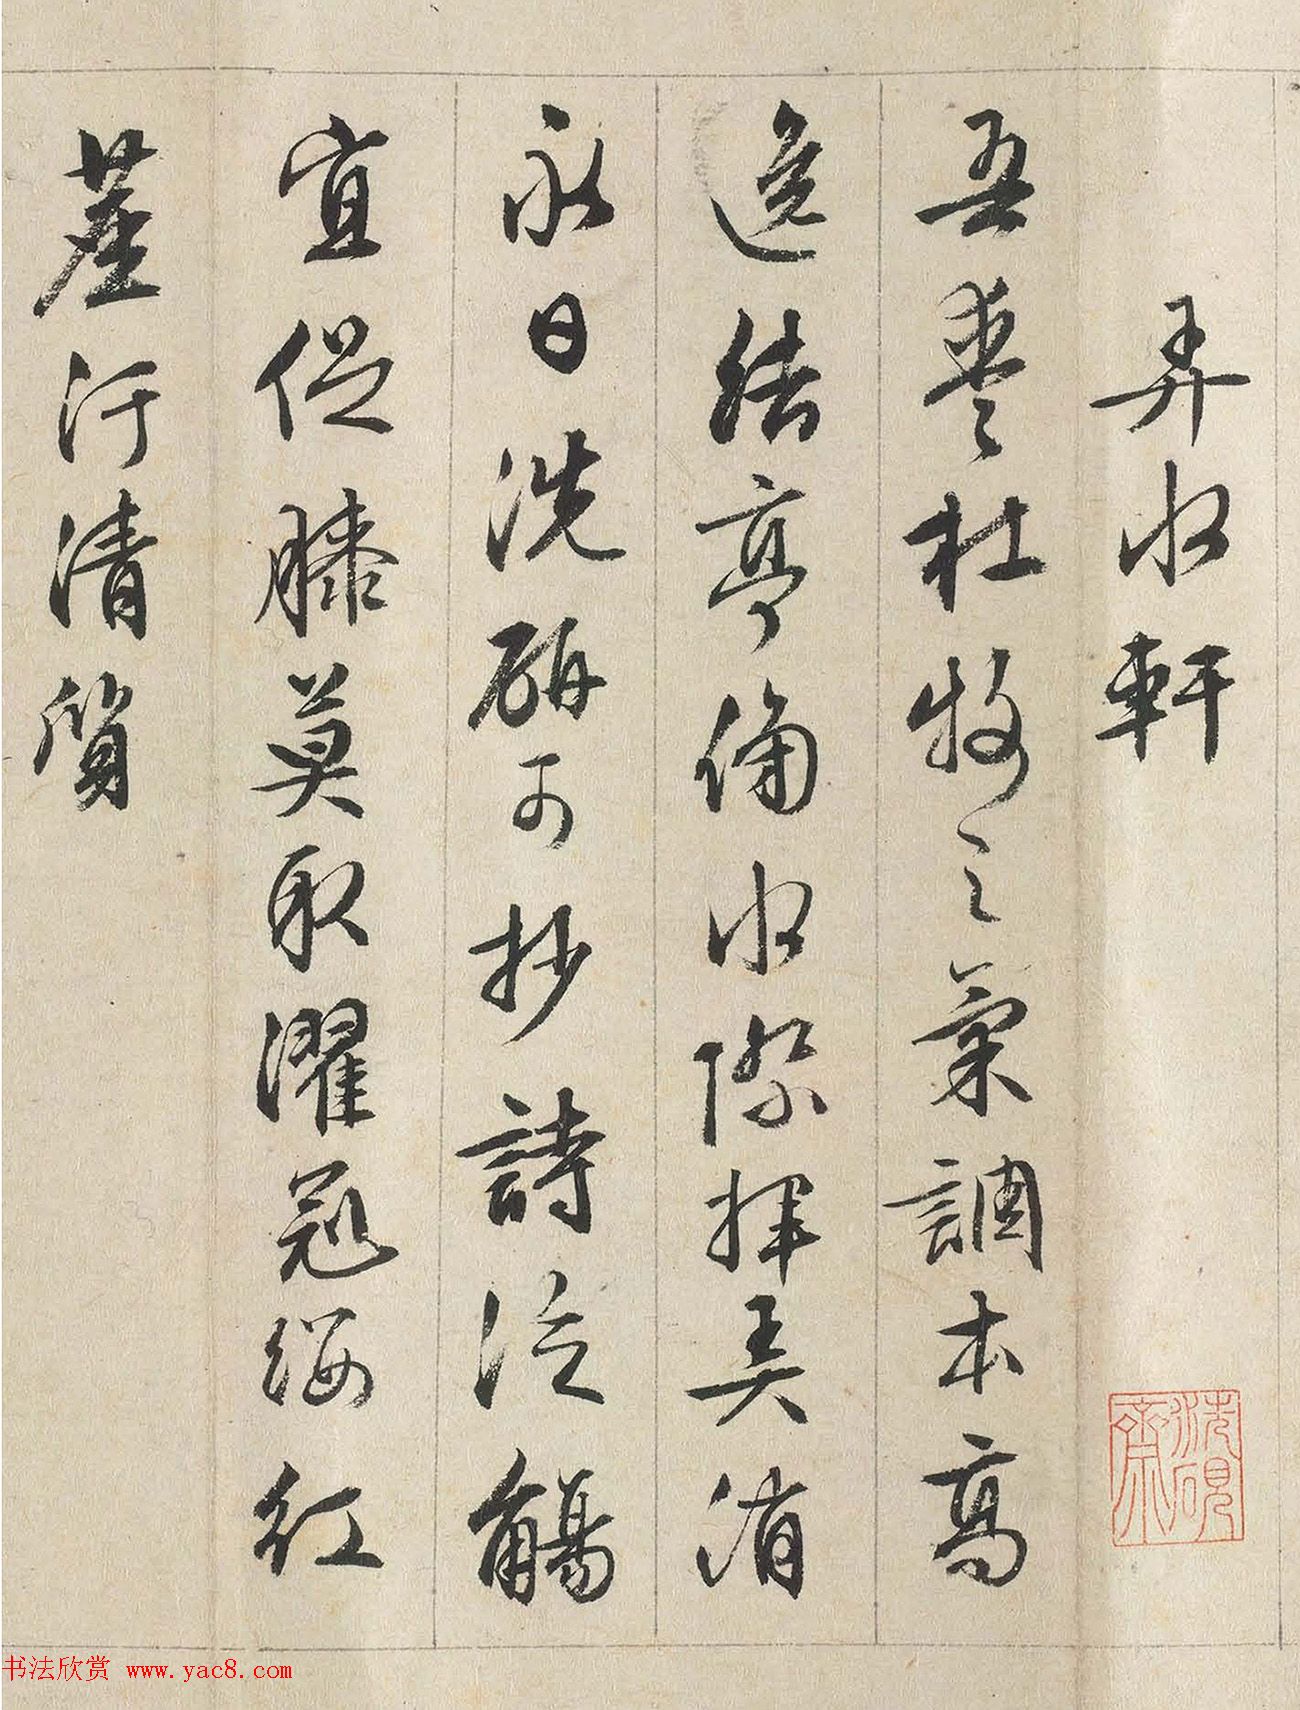 弄水軒
吾愛杜牧之氣調本高
逸結亭俯水際揮弄消
永日洗硏可抄詩泛觴
宜促膝莫取濯冠纓紅
塵汙清質
洗硯齋
书法欣赏 www.yac8.com